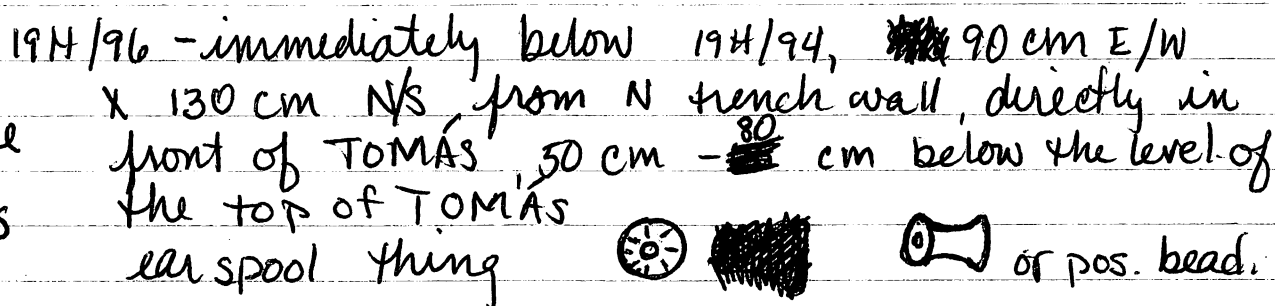 19H/96 - immediately below 19H/94, 90 cm E/W
x 130 cm N/S, from N trench wall, directly in
front of TOMÁS, 50 cm - 80 cm below the level of
the top of TOMÁS
ear spool thing or pos. bead.